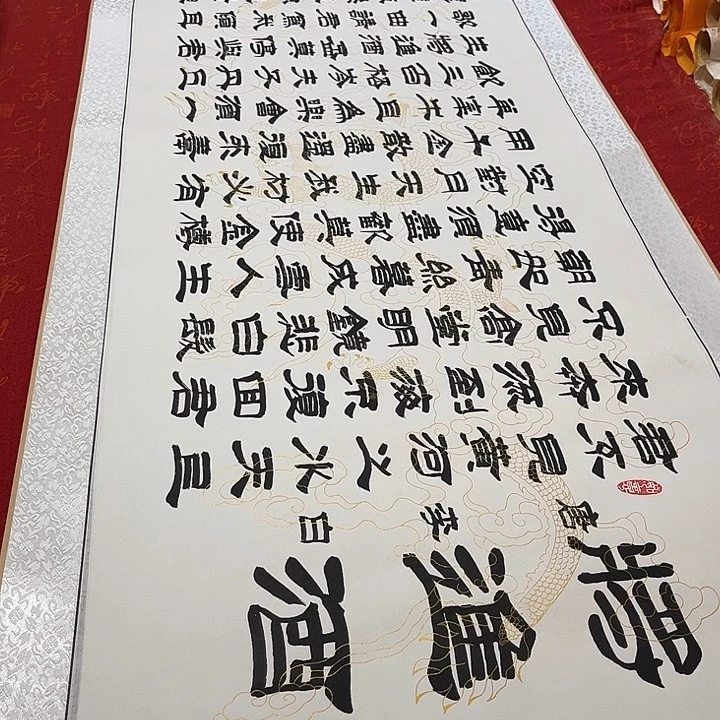 將進酒
唐李白
君不見黃河之水天上
來奔流到海不復回君
不見高堂明鏡悲白髮
朝如青絲暮成雪人生
得意須盡歡莫使金樽
空對月天生我材必有
用千金散盡還復來烹
羊宰牛且為樂會須一
飲三百杯岑夫子丹丘
生將進酒杯莫停與君
歌一曲請君為我傾耳